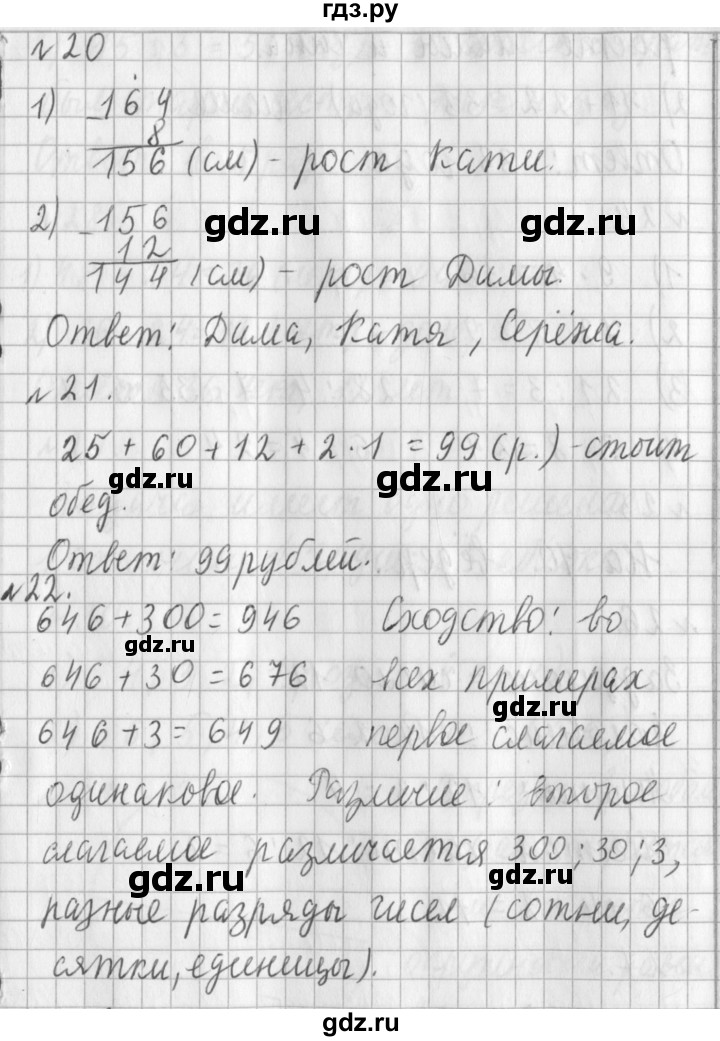 гдз.ру
№20
1) _164
8
156 (см) - рост Кати.
2) _156
gdz.ru
gdz.ru
12
144 (см) - рост Димы.
Ответ: Дима, Катя, Серёжа.
№21.
25 + 60 + 12 + 2 · 1 = 99 (р.) - стоит
gdz.ru
gdz.ru
обед.
Ответ: 99 рублей.
№22.
646 + 300 = 946 Сходство: во
gdz.ru
646 + 30 = 676 всех примерах
gdz.ru
646 + 3 = 649 первое слагаемое
одинаковое. Различие: второе
слагаемое различается 300; 30; 3,
gdz.ru
gdz.ru
разные разряды чисел (сотни, де-
сятки, единицы).
gdz.ru